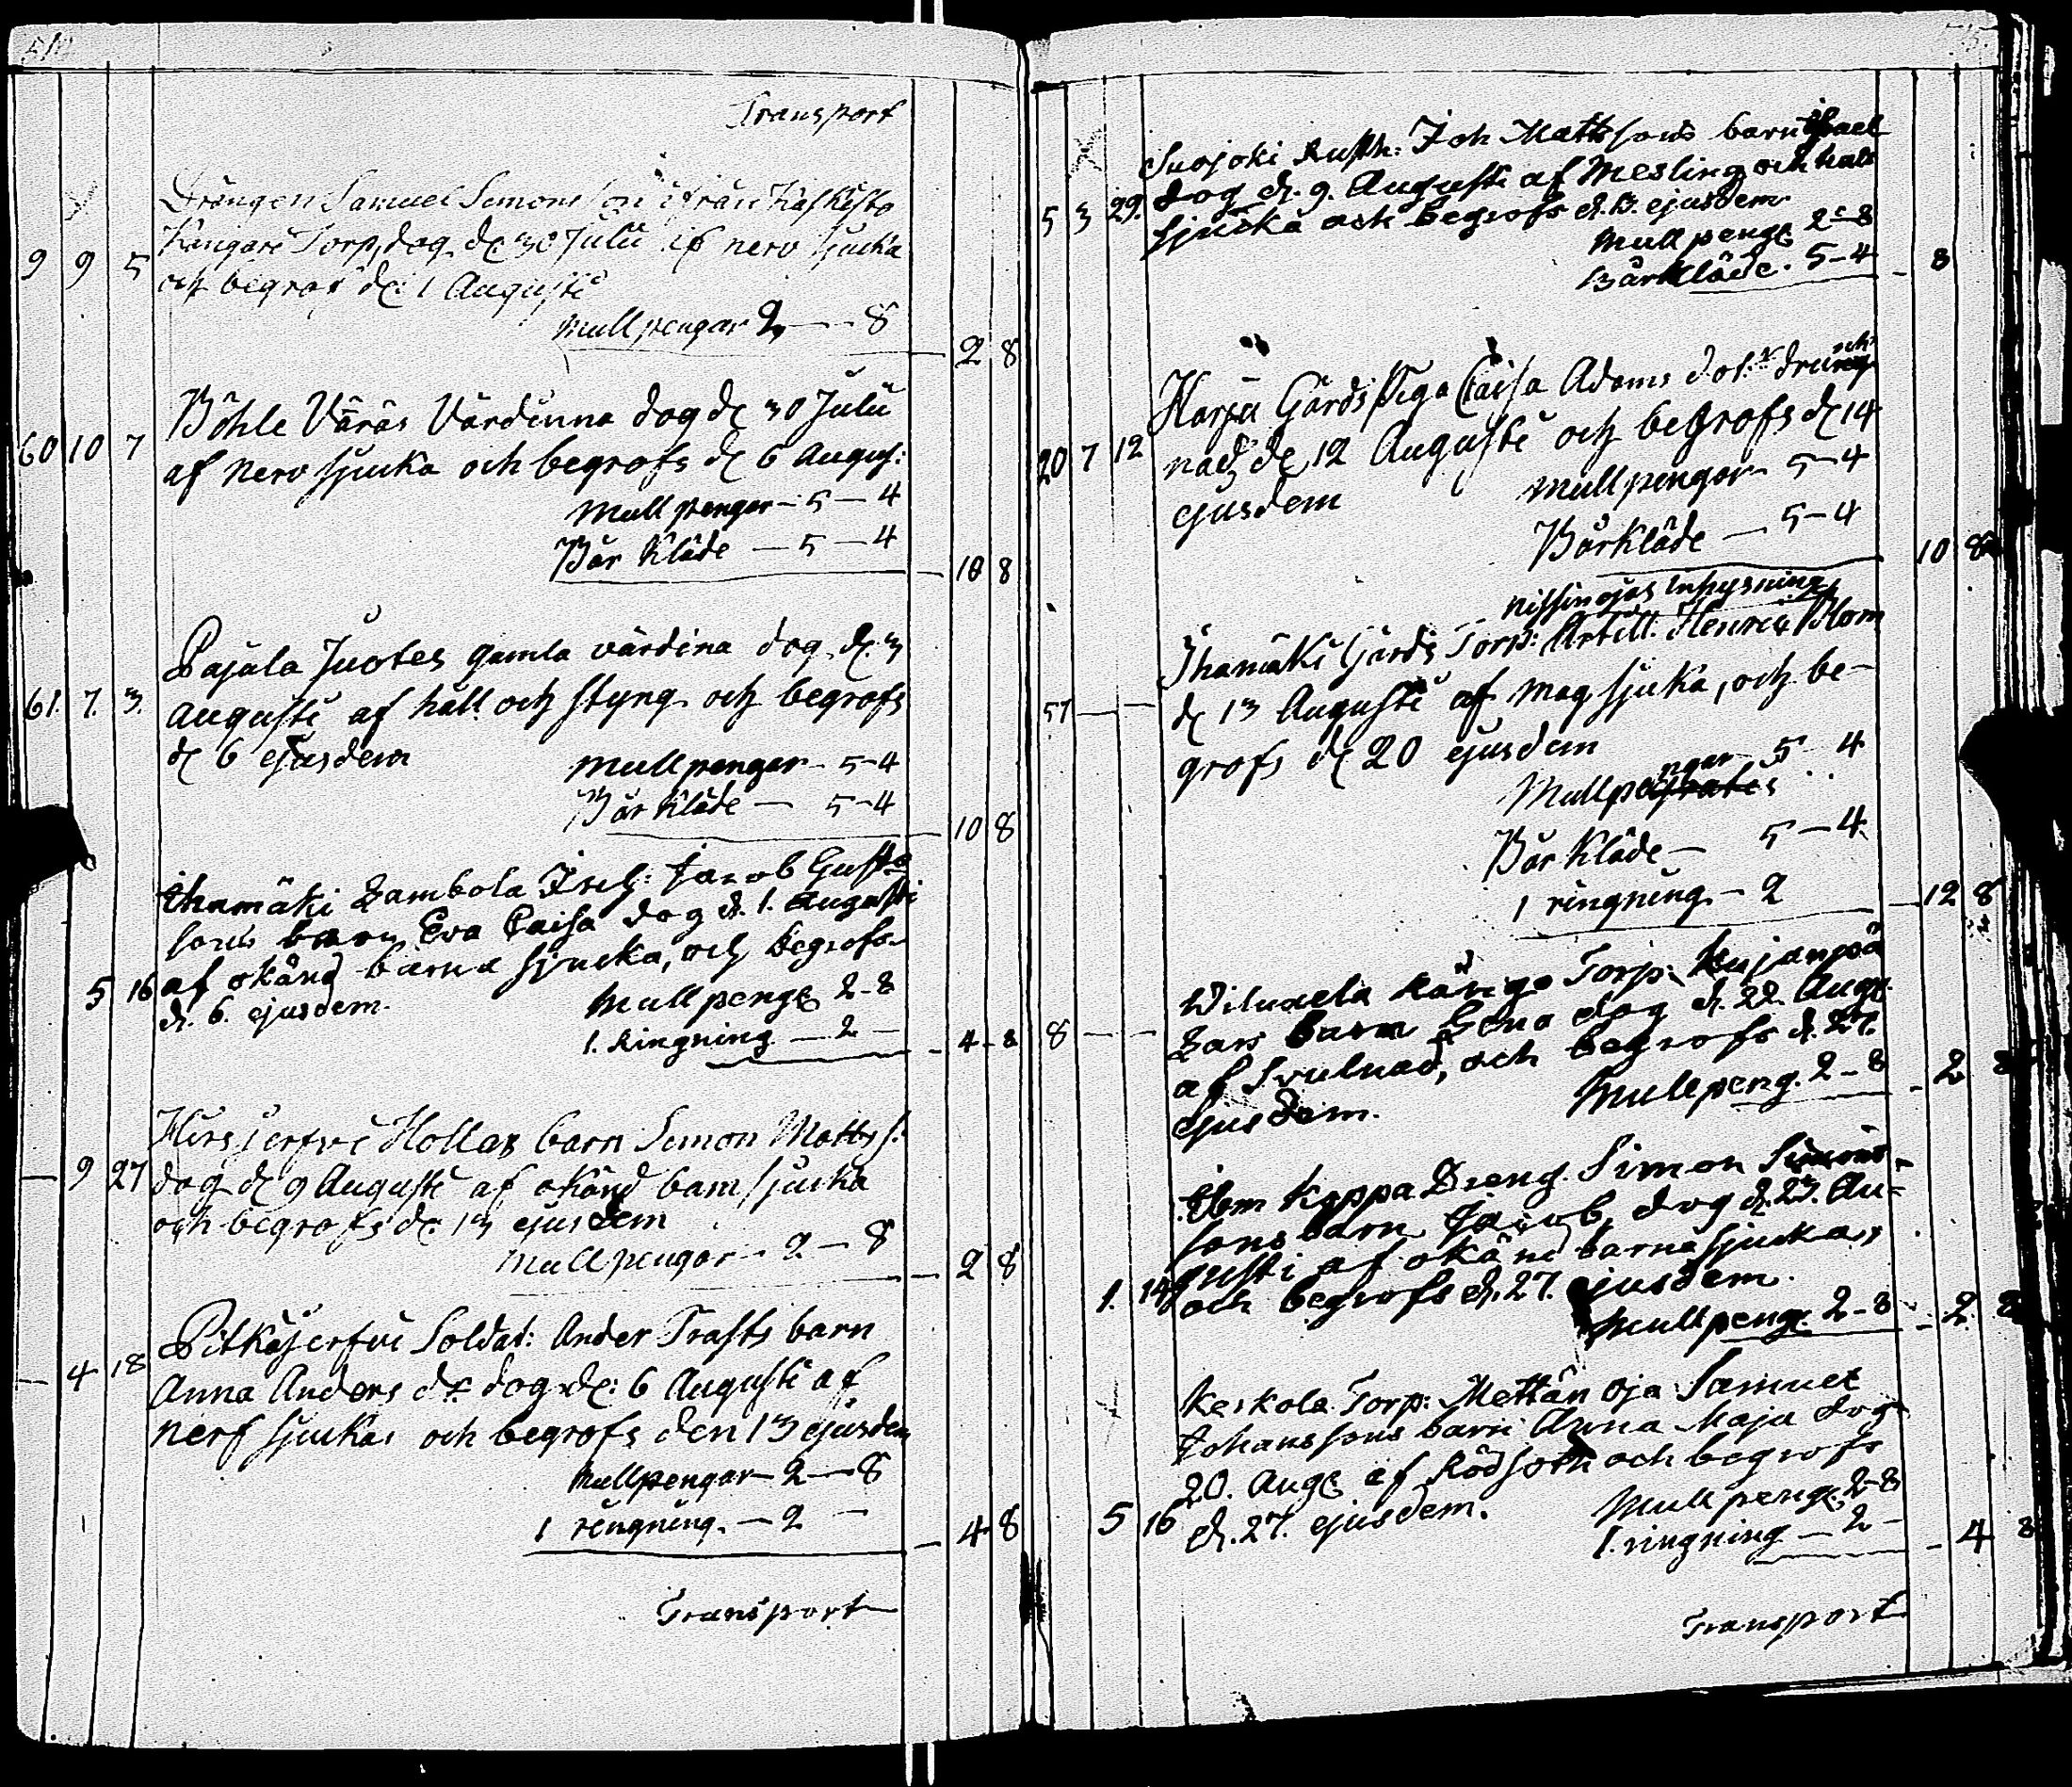 Transport
9 9 5 Drängen Samuel Simonsson ifrån Kaskisto
Kangare Torp, dog de 30 Julii af nerv sjucka
och begrafs de: 1 Augusti
Mullpengar 2 — 8
2 8
60 10 7 Böhle Väräs Värdinna dog de 30 Julii
af nerv sjucka och begrofs de 6 August:
Mullpengar — 5 — 4
Bår kläde — 5 — 4
10 8
61. 7. 3. Pajula Juotes gamla värdina dog de. 3
Augusti af håll och styng och begrofs
de 6 ejusdem
Mullpengar — 5-4
Bår kläde — 5-4
10 8
Ihamäki Lambola Jacob Gustaf
sons barn Eva Caisa dog d. 1. Augusti
5 16 af okänd barna sjucka, och begrofs
d. 6. ejusdem.
Mullpenge 2-8
1. Ringning — 2 —
4 - 8
Hirsjerfvi Hollas barn Simon Matts s:
— 9 27 dog de 9 Augusti af okänd barn sjucka
och begrofs de: 13 ejusdem
Mullpengar — 2 — 8
2 8
Pitkäjerfvi Soldat: Ander Trasts barn
— 4 18 Anna Anders dr dog de: 6 Augusti af
nerf sjucka och begrofs den 13 ejusdem
Mullpengar — 2 — 8
1 ringning. — 2 —
4 8
Transport
Suojoki Rusth: Joh Mattssons barn Israel
5 3 29. dog d. 9. Augusti af Mesling och hals
sjucka och begrofs d. 13. ejusdem.
Mull penge 2-8
Bårkläde. 5-4
8
Harju Gårds Piga Caisa Adams dot:r drunck
20 7 12 nad, de 12 Augusti och begrofs de 14
ejusdem
Mullpengar 5-4
Bårkläde — 5-4
10 8
Nissinojas Inhysning
Ihamäki Gårds Torp: Artill. Henric Blom
57 — — de 13 Augusti af mag sjuka, och be-
grofs de 20 ejusdem
Mullpengar 5 .. 4
Bår kläde — 5 — 4
1 ringning — 2
12 8
Torp: Kujanpä
8 — — Lars barn Lena dog d. 22. Auge.
af Svulnad, och begrofs d. 27.
ejusdem.
Mullpeng. 2-8
2 8
Oem Koppa Dreng. Simon Simons-
sons barn Jacob, dog d. 23. Au-
gusti af okänd barna sjucka,
1. 14 och begrofs d. 27. ejusdem.
Mullpenge. 2-8
2 8
Keskola Torp: Mettän oja Samuel
Johanssons barn Anna Maja dog
20. Auge af Rödsoth och begrofs
5 16 d. 27. ejusdem.
Mull penge. 2-8
1. ringning — 2 —
4 8
Transport